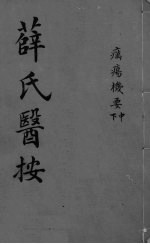 薛氏醫按
癘瘍機要
中下